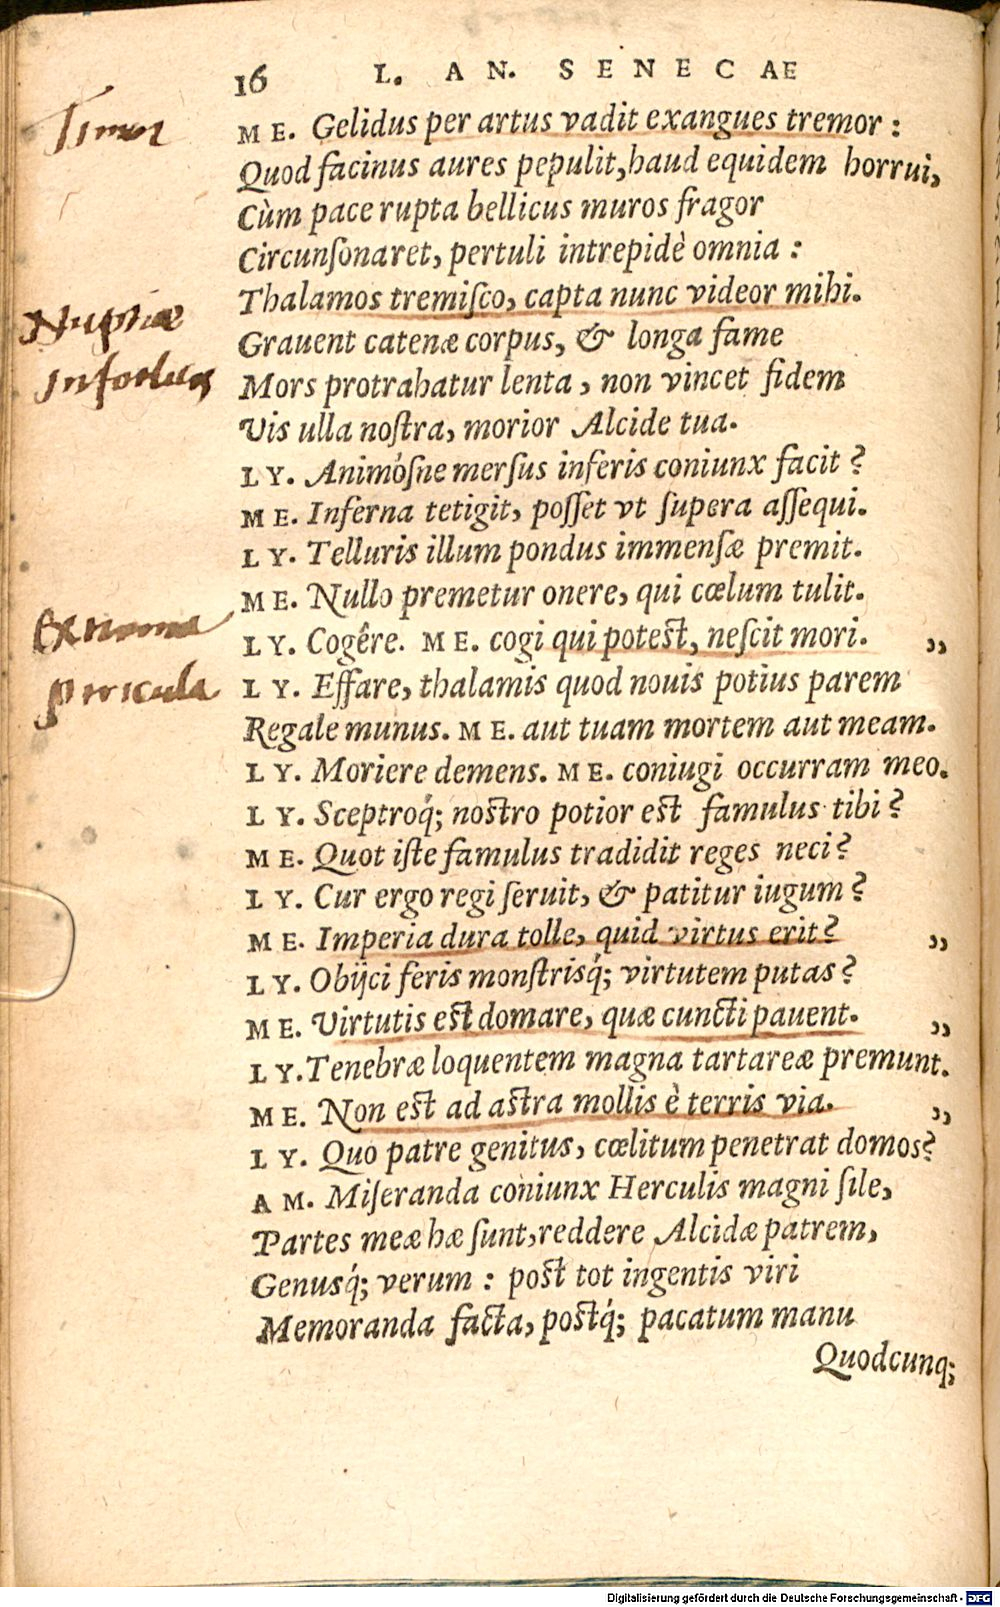 16 L. AN. SENECAE
Timor
ME. Gelidus per artus vadit exangues tremor :
Quod facinus aures pepulit, haud equidem horrui,
Cùm pace rupta bellicus muros fragor
Circunſonaret, pertuli intrepidè omnia :
Thalamos tremiſco, capta nunc videor mihi.
Nuptiae
Grauent catenæ corpus, & longa fame
Mors protrahatur lenta, non vincet fidem
Vis ulla noſtra, morior Alcide tua.
LY. Animóſne merſus inferis coniunx facit ?
ME. Inferna tetigit, poſſet vt ſupera aſſequi.
LY. Telluris illum pondus immenſæ premit.
ME. Nullo premetur onere, qui cœlum tulit.
LY. Cogêre. ME. cogi qui poteſt, neſcit mori. ,,
LY. Effare, thalamis quod nouis potius parem
pericula
Regale munus. ME. aut tuam mortem aut meam.
LY. Moriere demens. ME. coniugi occurram meo.
LY. Sceptroq́; noſtro potior eſt famulus tibi ?
ME. Quot iſte famulus tradidit reges neci ?
LY. Cur ergo regi ſeruit, & patitur iugum ?
ME. Imperia dura tolle, quid virtus erit ? ,,
LY. Obijci feris monſtrisq́; virtutem putas ?
ME. Virtutis eſt domare, quæ cuncti pauent. ,,
LY. Tenebræ loquentem magna tartareæ premunt.
ME. Non eſt ad aſtra mollis è terris via. ,,
LY. Quo patre genitus, cœlitum penetrat domos?
AM. Miſeranda coniunx Herculis magni ſile,
Partes meæ hæ ſunt, reddere Alcidæ patrem,
Genusq́; verum : poſt tot ingentis viri
Memoranda facta, poſtq́; pacatum manu
Quodcunq;
Digitalisierung gefördert durch die Deutsche Forschungsgemeinschaft - DFG